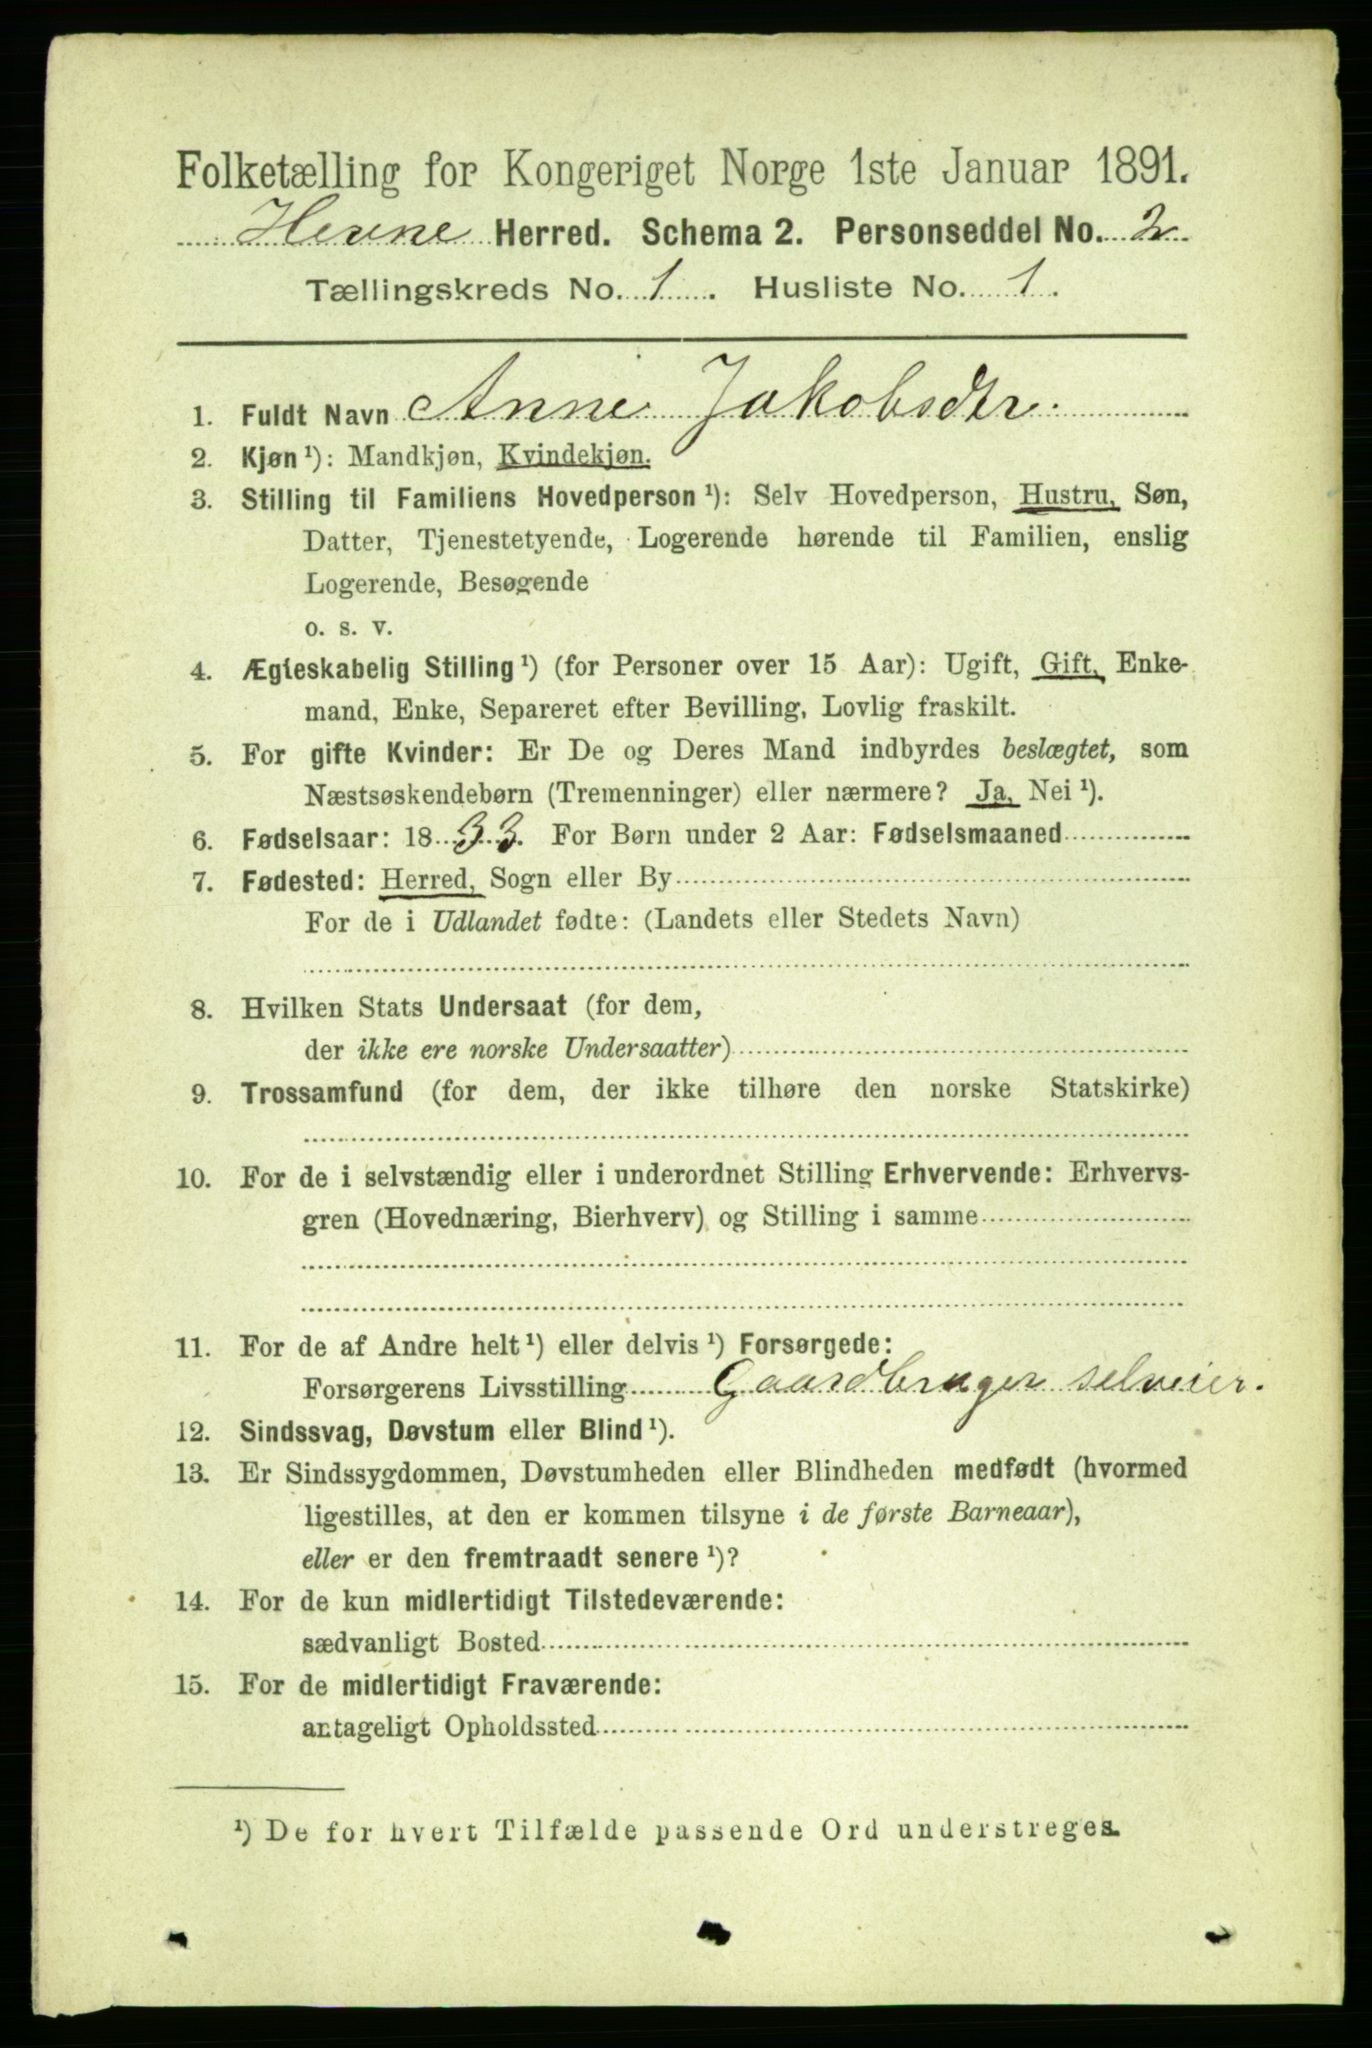 Folketælling for Kongeriget Norge 1ste Januar 1891.
Hevne Herred. Schema 2. Personseddel No. 2
Tællingskreds No. 1. Husliste No. 1.
1. Fuldt Navn Anne Jakobsdtr.
2. Kjøn¹): Mandkjøn, Kvindekjøn.
3. Stilling til Familiens Hovedperson¹): Selv Hovedperson, Hustru, Søn,
Datter, Tjenestetyende, Logerende hørende til Familien, enslig
Logerende, Besøgende
o. s. v.
4. Ægteskabelig Stilling¹) (for Personer over 15 Aar): Ugift, Gift, Enke-
mand, Enke, Separeret efter Bevilling, Lovlig fraskilt.
5. For gifte Kvinder: Er De og Deres Mand indbyrdes beslægtet, som
Næstsøskendebørn (Tremenninger) eller nærmere? Ja, Nei¹).
6. Fødselsaar: 1833. For Børn under 2 Aar: Fødselsmaaned
7. Fødested: Herred, Sogn eller By
For de i Udlandet fødte: (Landets eller Stedets Navn)
8. Hvilken Stats Undersaat (for dem,
der ikke ere norske Undersaatter)
9. Trossamfund (for dem, der ikke tilhøre den norske Statskirke)
10. For de i selvstændig eller i underordnet Stilling Erhvervende: Erhvervs-
gren (Hovednæring, Bierhverv) og Stilling i samme
11. For de af Andre helt¹) eller delvis¹) Forsørgede:
Forsørgerens Livsstilling Gaardbruger selveier.
12. Sindssvag, Døvstum eller Blind¹).
13. Er Sindssygdommen, Døvstumheden eller Blindheden medfødt (hvormed
ligestilles, at den er kommen tilsyne i de første Barneaar),
eller er den fremtraadt senere¹)?
14. For de kun midlertidigt Tilstedeværende:
sædvanligt Bosted
15. For de midlertidigt Fraværende:
antageligt Opholdssted
¹) De for hvert Tilfælde passende Ord understreges.